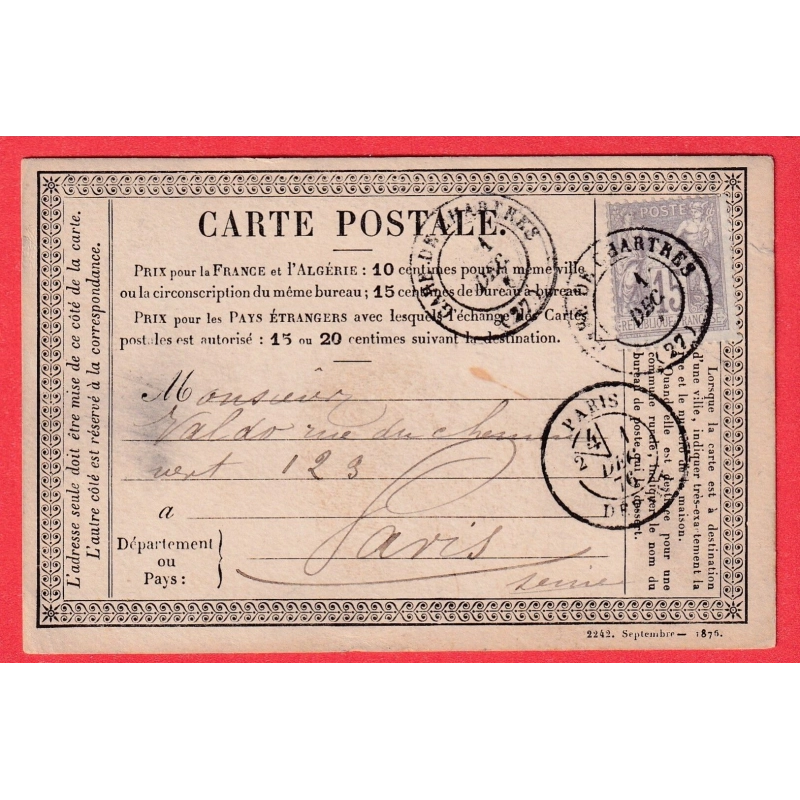 CARTE POSTALE.
PRIX pour la FRANCE et l'ALGÉRIE : 10 centimes pour la même ville
ou la circonscription du même bureau ; 15 centimes de bureau à bureau.
PRIX pour les PAYS ÉTRANGERS avec lesquels l'échange des Cartes
postales est autorisé : 15 ou 20 centimes suivant la destination.
Monsieur
Valdo rue du chemin
vert 123
a Paris
Département
ou
Pays :
seine
L'adresse seule doit être mise de ce côté de la carte.
L'autre côté est réservé à la correspondance.
GARE-DE-CHARTRES
1
DEC
(27)
POSTE
15
REPUBLIQUE FRANÇAISE
GARE-DE-CHARTRES
1
DEC
(27)
PARIS
1
DEC
76
Lorsque la carte est à destination
d'une ville, indiquer très-exactement la
rue et le numéro de la maison.
Quand elle est destinée pour une
commune rurale, indiquer le nom du
bureau de poste qui la dessert.
2242. Septembre — 1876.